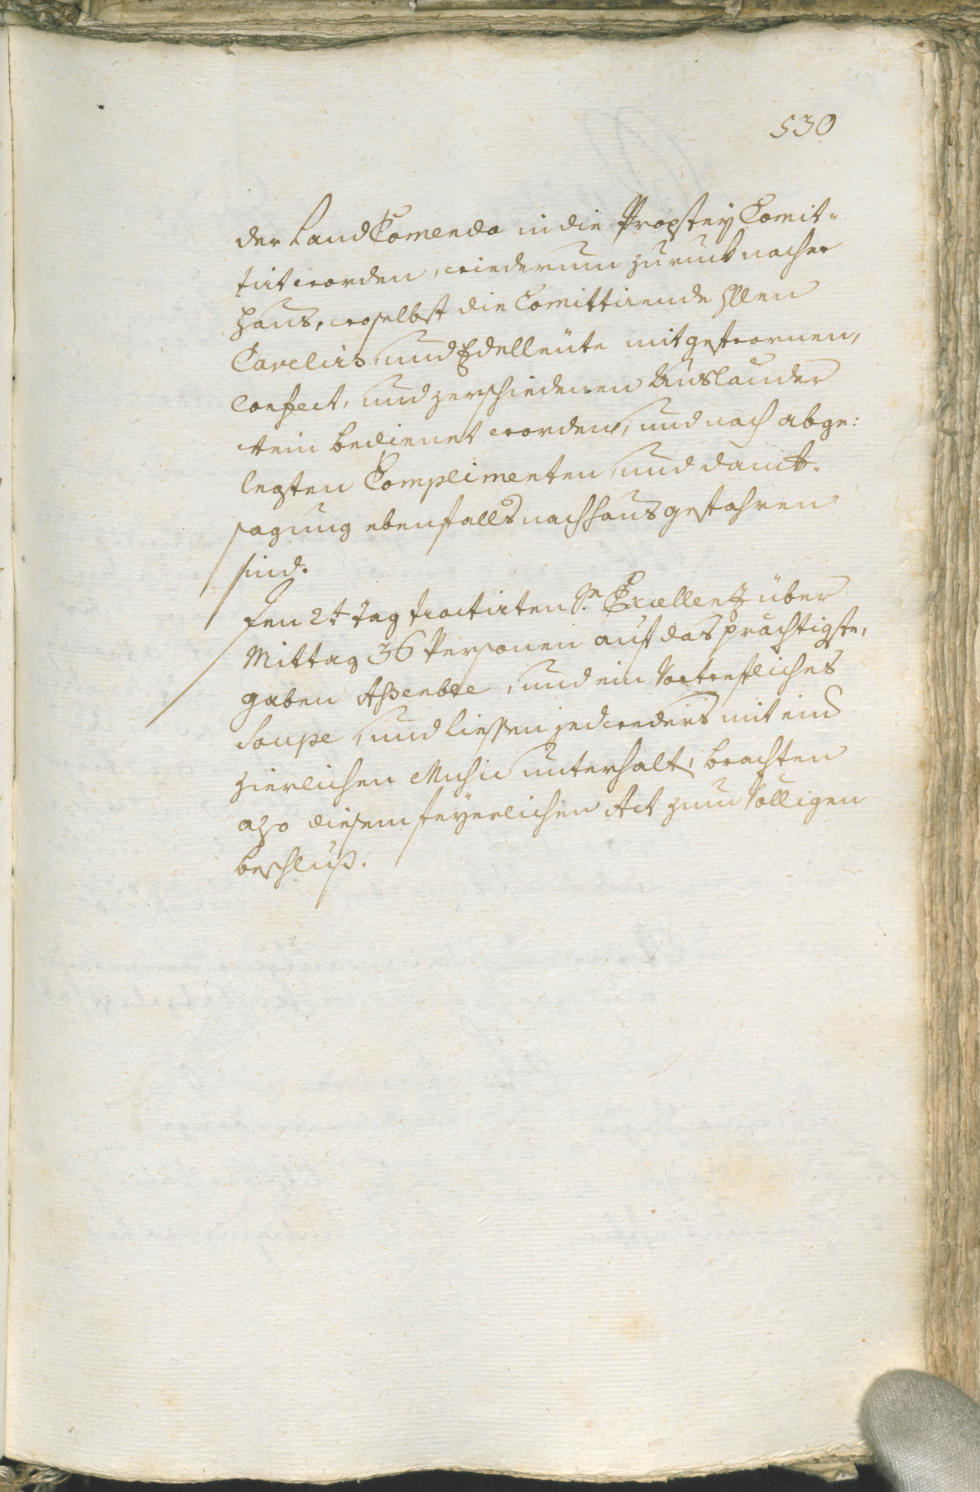 530
der Land Comenda in die Propstey Comit-
tirt worden, wiederum zuruck nacher
Haus, woselbst die Comittirende Hllen
Cavelirs, und Edelleüte mit gefrornen,
Confect, und zerschiedenen Ausländer
Wein bedienet worden, und nach abge:
legten Complimenten und danck-
sagung ebenfalls nach Haus gefahren
sind.
Den 2t Tag tractirten Sr Excellenz über
Mittag 36 Personen auf das prächtigste,
gaben Aßemblee, und ein Vortrefliches
Soupe, und liessen jedweders mit ein
zierlichen Music unterhalt, brachten
also diesem feyerlichen Act zum Völligen
beschluß.